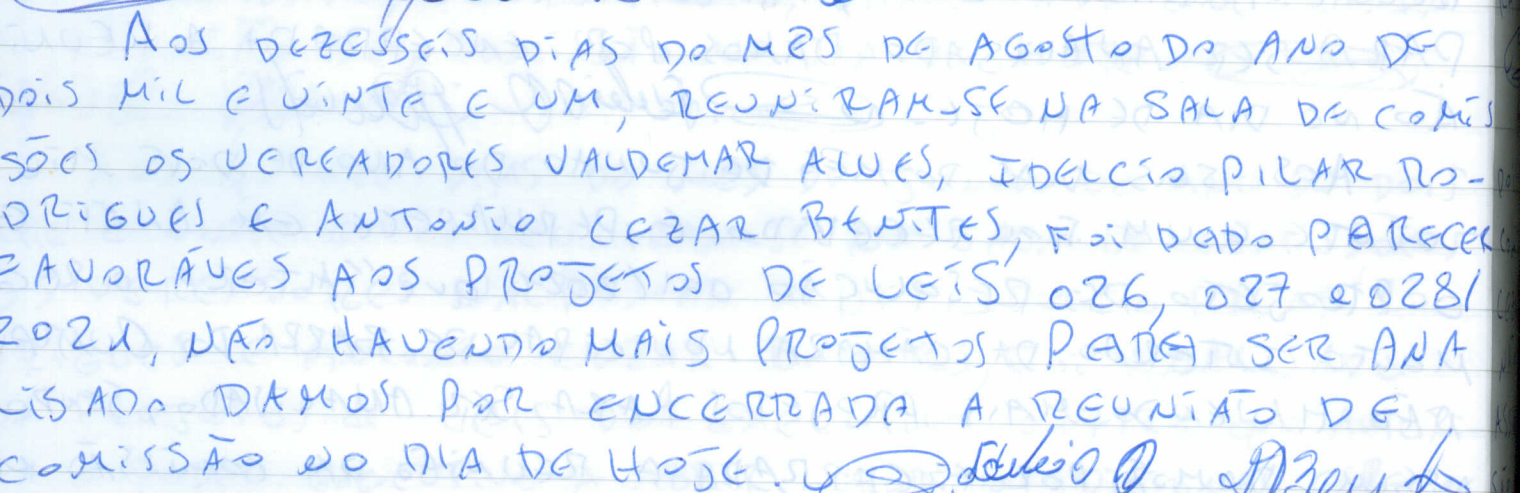 Aos DEZESSEIS DIAS DO MÊS DE AGOSTO DO ANO DE
DOIS MIL E VINTE E UM, REUNIRAM-SE NA SALA DE COMIS
SÕES OS VEREADORES VALDEMAR ALVES, IDELCIO PILAR RO-
DRIGUES E ANTONIO CEZAR BENITES, FOI DADO PARECER
FAVORÁVES AOS PROJETOS DE LEIS 026, 027 e 028/
2021, NÃO HAVENDO MAIS PROJETOS PARA SER ANA
LISADO DAMOS POR ENCERRADA A REUNIÃO DE
COMISSÃO NO DIA DE HOJE.